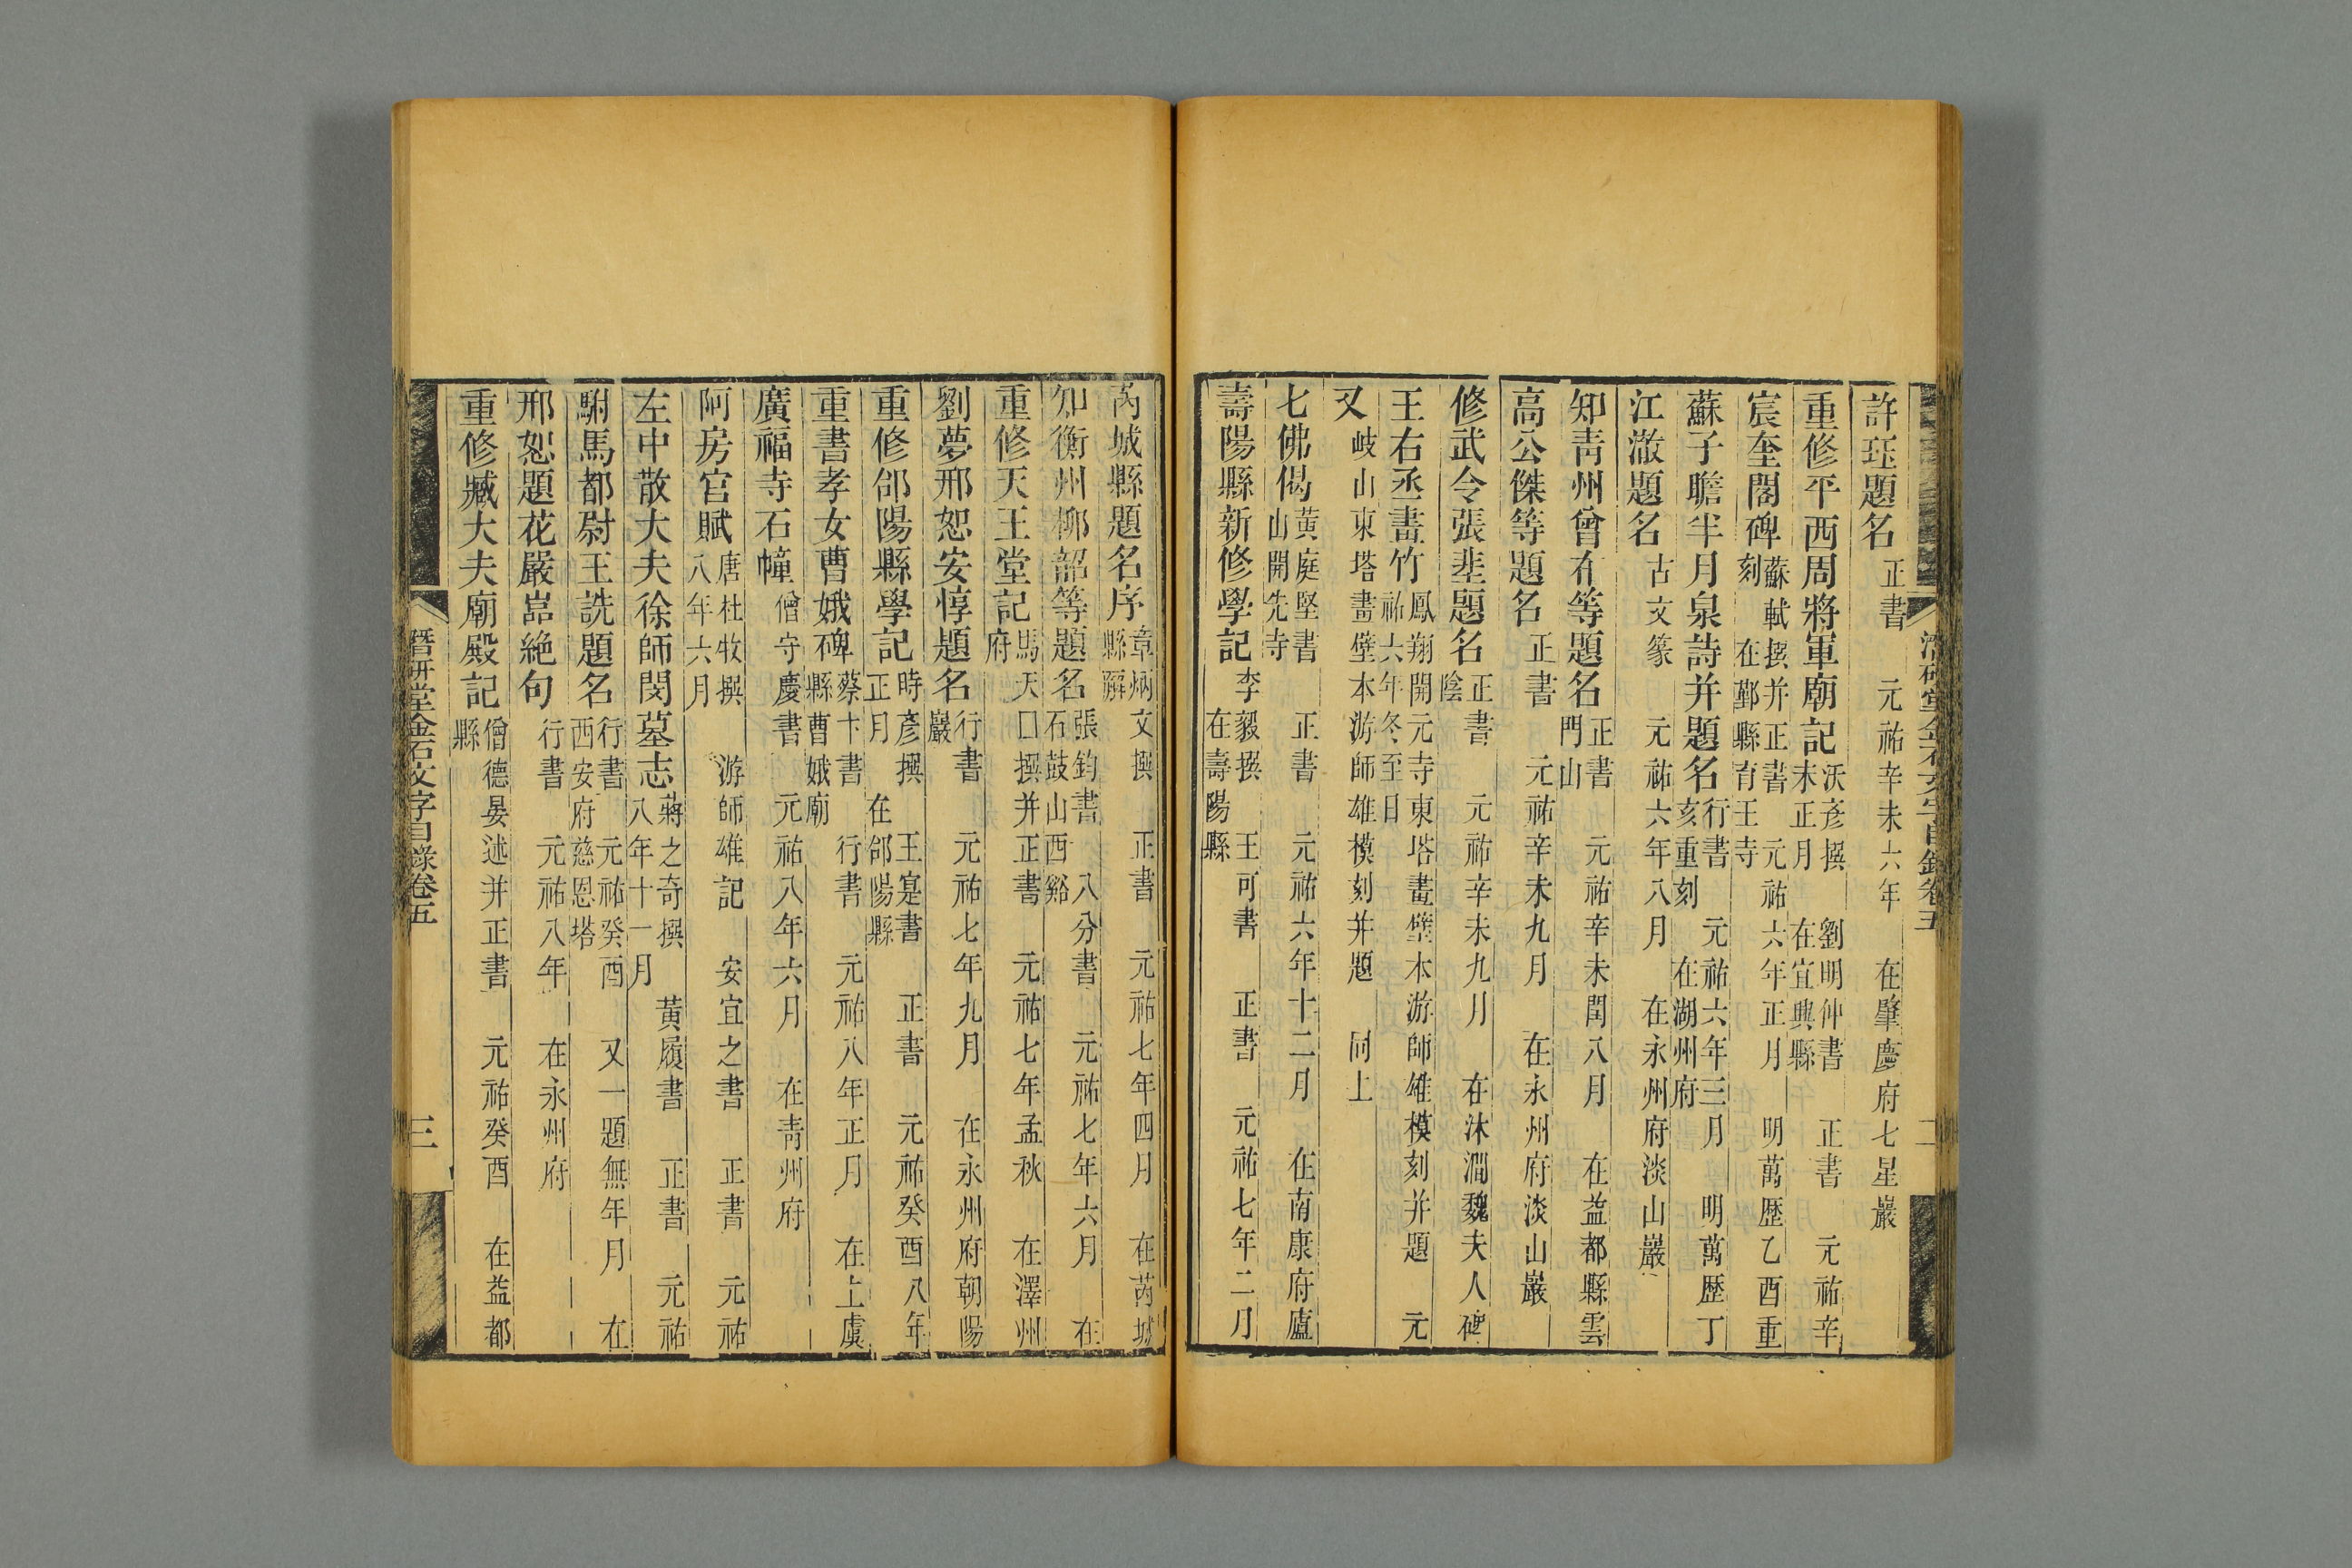 許珏題名 正書 元祐辛未六年 在肇慶府七星巖
重修平西周將軍廟記 沃彥撰 劉明仲書 正書 元祐辛未正月 在宜興縣
宸奎閣碑 蘇軾撰并正書 元祐六年正月 明萬歷乙酉重刻 在鄞縣育王寺
蘇子瞻半月泉詩并題名 行書 元祐六年三月 明萬歷丁亥重刻 在湖州府
江澈題名 古文篆 元祐六年八月 在永州府淡山巖
知青州曾布等題名 正書 元祐辛未閏八月 在益都縣雲門山
高公傑等題名 正書 元祐辛未九月 在永州府淡山巖
修武令張斐題名 正書 元祐辛未九月 在沐澗魏夫人碑陰
王右丞畫竹 鳳翔開元寺東塔畫壁本游師雄模刻并題 元祐六年冬至日
又 岐山東塔畫壁本游師雄模刻并題 同上
七佛偈 黃庭堅書 正書 元祐六年十二月 在南康府廬山開先寺
壽陽縣新修學記 李毅撰 王可書 正書 元祐七年二月 在壽陽縣
潛研堂金石文字目錄卷五 二
芮城縣題名序 章炳文撰 正書 元祐七年四月 在芮城縣廨
知衡州柳韶等題名 張鈞書 八分書 元祐七年六月 在石鼓山西谿
重修天王堂記 馬天囗撰并正書 元祐七年孟秋 在澤州府
劉蒙邢恕安惇題名 行書 元祐七年九月 在永州府朝陽巖
重修郃陽縣學記 時彥撰 王寔書 正書 元祐癸酉八年正月 在郃陽縣
重書孝女曹娥碑 蔡卞書 行書 元祐八年正月 在上虞縣曹娥廟
廣福寺石幢 僧守慶書 元祐八年六月 在青州府
阿房宮賦 唐杜牧撰 游師雄記 安宜之書 正書 元祐八年六月
左中散大夫徐師閔墓志 蔣之奇撰 黃履書 正書 元祐八年十一月
駙馬都尉王詵題名 行書 元祐癸酉 又一題無年月 在西安府慈恩塔
邢恕題花嚴嵓絕句 行書 元祐八年 在永州府
重修臧大夫廟殿記 僧德晏述并正書 元祐癸酉 在益都縣
潛研堂金石文字目錄卷五 三